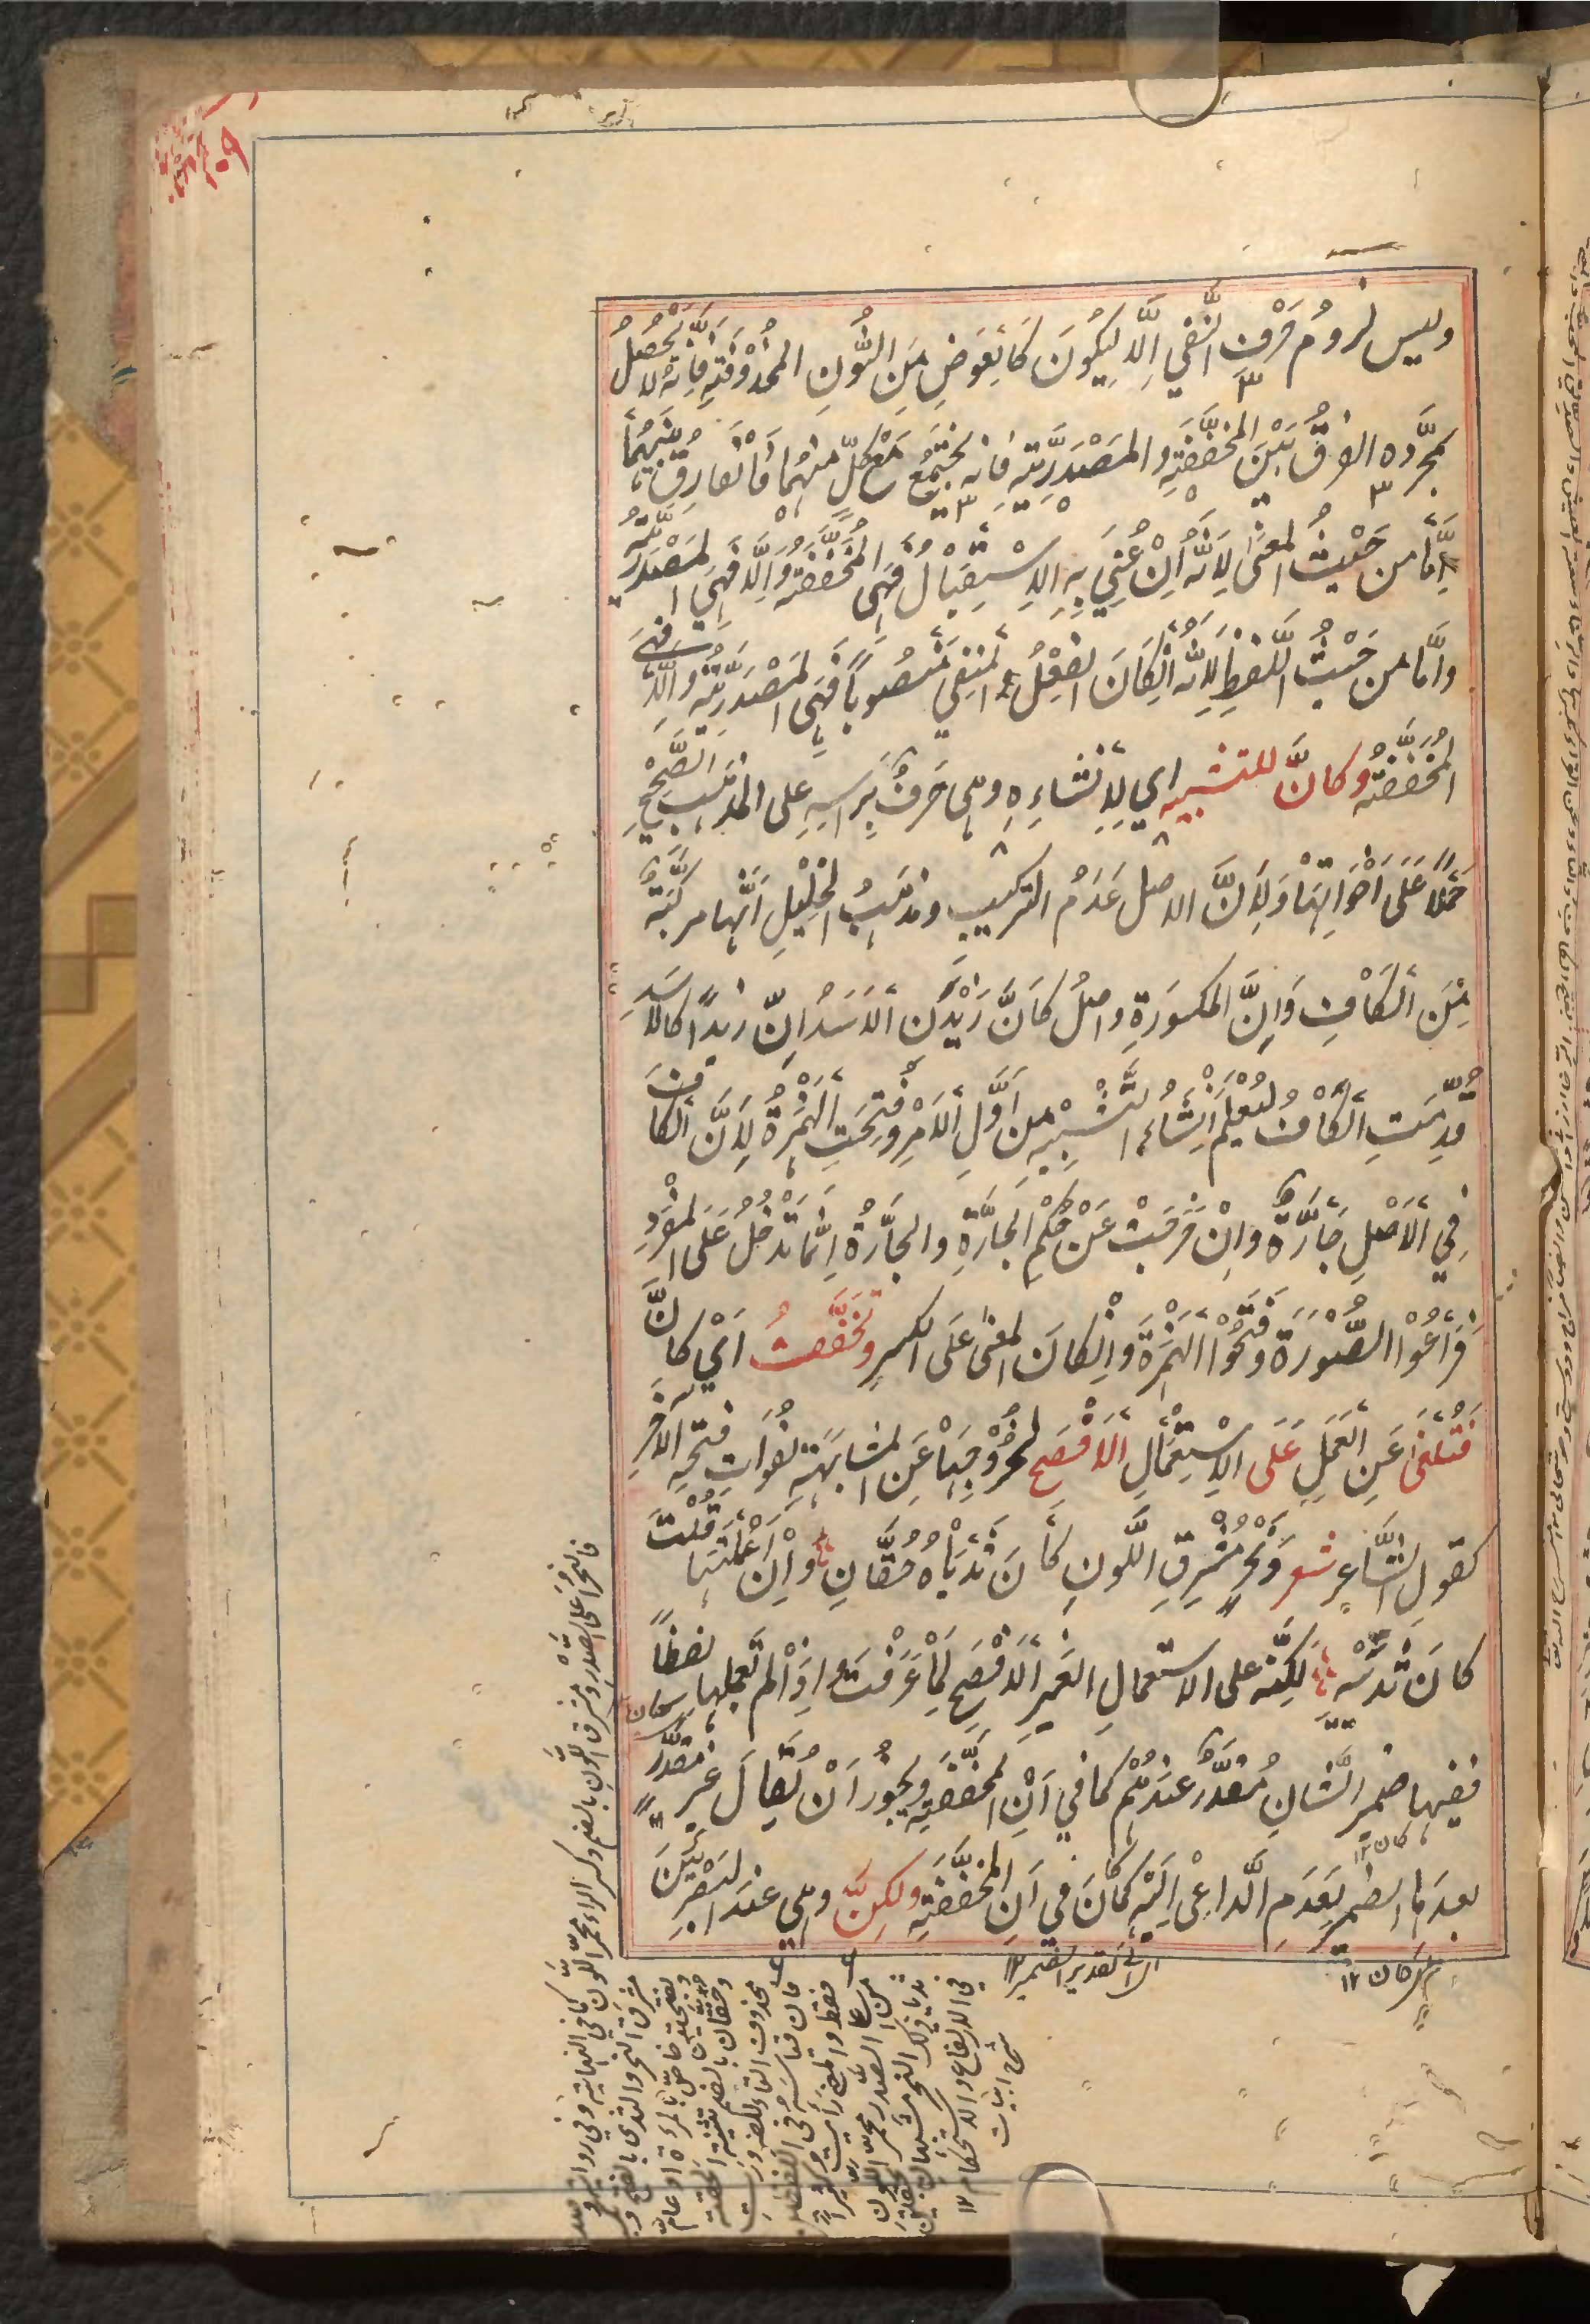 وليس لزوم حرف النفي الا ليكون كالعوض من النون المحذوفة فانه لا يحصل
بمجرده الفرق بين المخففة والمصدرية فانه يجتمع مع كل منهما فالفارق بينهما
اما من حيث المعنى لانه ان عني به الاستقبال فهي المخففة والا فهي المصدرية
واما من حيث اللفظ لانه ان كان الفعل المنفي منصوبا فهي المصدرية والا فهي
المخففة وكانّ للتشبيه اي لانشائه وهي حرف براسه على المذهب الصحيح
حملا على اخواتها ولان الاصل عدم التركيب ومذهب الخليل انها مركبة
من الكاف وانّ المكسورة واصل كانّ زيدن الاسد انّ زيدا كالاسد
قدمت الكاف ليعلم انشاء التشبيه من اول الامر وفتحت الهمزة لان الكاف
في الاصل جارّة وان خرجت عن حكم الجارة والجارة انما تدخل على المفرد
فراعوا الصورة وفتحوا الهمزة وان كان المعنى على الكسر وتخفف اي كانّ
فتلغى عن العمل على الاستعمال الافصح لخروجها عن المشابهة لفوات فتحة الاخر
كقول الشاعر شعر ونحر مشرق اللون كان ثدياه حقان وان اعملتها قلت
كان ثدييه لكنه على الاستعمال الغير الافصح لما عرفت واذا لم تعملها لفظا
ففيها ضمير الشان مقدر عندهم كما في ان المخففة ويجوز ان يقال غير مقدر
بعدها الضمير لعدم الداعي اليه كما كان في ان المخففة ولكنّ وهي عند البصريين
كان ١٢
اي الى تقدير الضمير ١٢
فالنحر اعلى الصدر ومشرق اللون بالضم وكسر الراء محمر اللون
كما في النهاية وفي رواية
مشرق النحر والثدي بالفتح
وحقان بالضم تثنية الحقة
محذوف التاء للضرورة
شرح ابيات